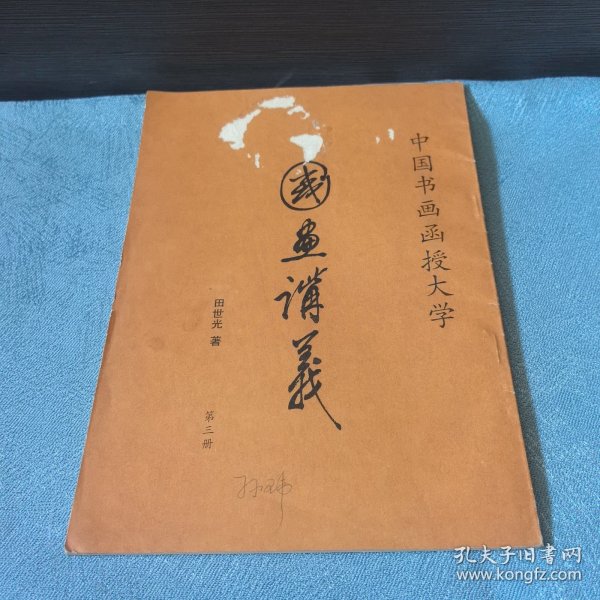 中国书画函授大学
國画講義
田世光 著
第三册
孔夫子旧书网
www.kongfz.com